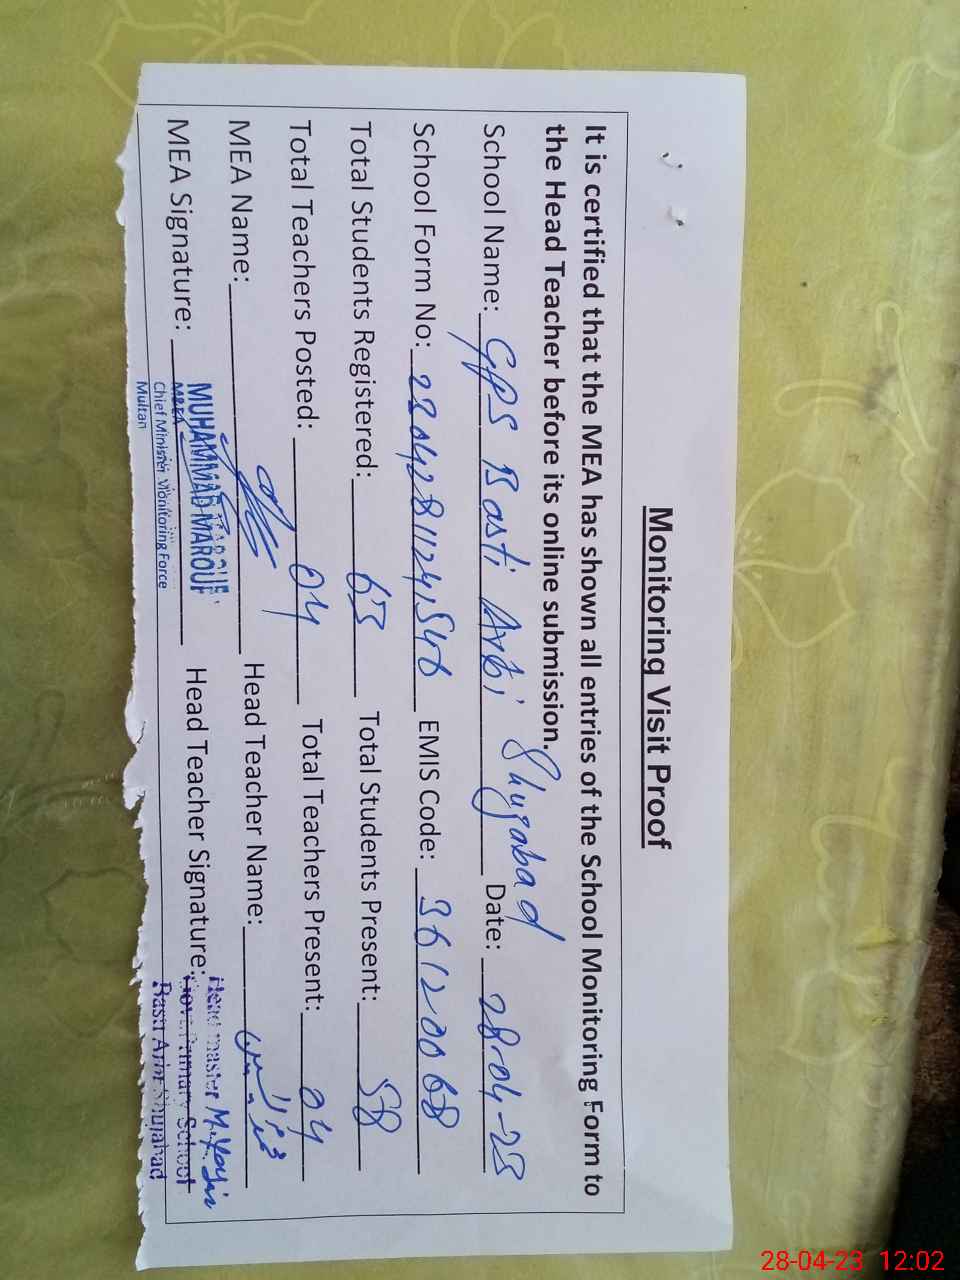 Monitoring Visit Proof
It is certified that the MEA has shown all entries of the School Monitoring Form to
the Head Teacher before its online submission.
School Name: GPS Basti Arbi Shujabad Date: 28-04-23
School Form No: EMIS Code: 36120068
Total Students Registered: 63 Total Students Present: 58
Total Teachers Posted: 04 Total Teachers Present: 04
MEA Name: Head Teacher Name:
MEA Signature: MUHAMMAD MAROUF Head Teacher Signature: Head master M. Yasin
MEA Govt. Primary School
Chief Minister Monitoring Force Basti Arbi Shujabad
Multan
28-04-23 12:02